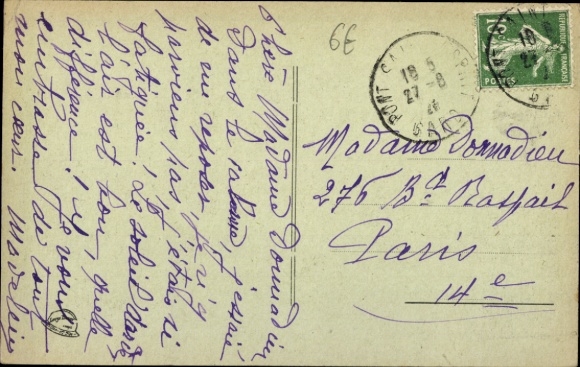 Chère Madame Donnadieu,
Dans le calme, j'essaie
de me reposer, je n'y
parviens pas, j'étais si
fatiguée! Le soleil dard
l'air est bon, quelle
différence! Je vous
embrasse de tout
mon cœur. Madeleine
6E
PONT SAINT ESPRIT
18 5
27 - 8
26
GARD
10
POSTES
RÉPUBLIQUE FRANÇAISE
Madame Donnadieu
276 Bd Raspail
Paris
14e